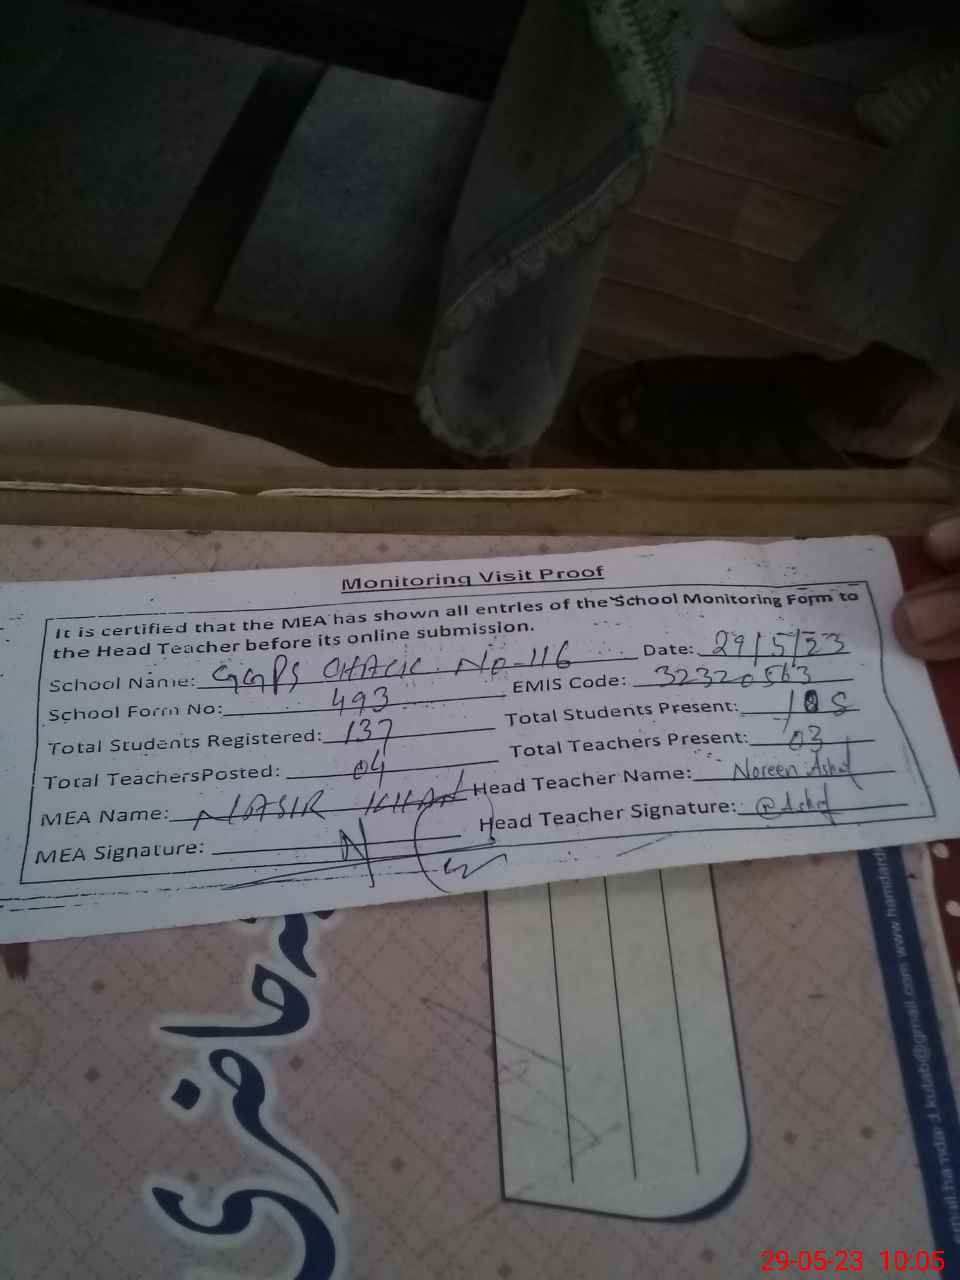 Monitoring Visit Proof
It is certified that the MEA has shown all entries of the School Monitoring Form to
the Head Teacher before its online submission.
School Name: GGPS CHACK No-116 Date: 29/5/23
School Form No: 493 EMIS Code: 32320563
Total Students Registered: 137 Total Students Present: 108
Total TeachersPosted: 04 Total Teachers Present: 03
MEA Name: NASIR KHAN Head Teacher Name: Noreen Ashraf
MEA Signature: Head Teacher Signature:
حاضری
email.hamdard.kutab@gmail.com www.hamdard
29-05-23 10:05